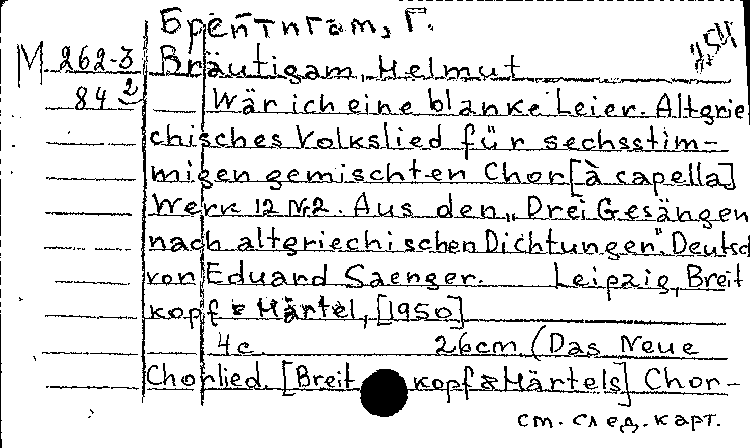 Брейтигам, Г.
М 262-3
Bräutigam, Helmut
84 2
Wär ich eine blanke Leier. Altgrie
chisches Volkslied für sechsstim-
migen gemischten Chor [à capella]
Werk 12 Nr2. Aus den „Drei Gesängen
nach altgriechischen Dichtungen". Deutsc
von Eduard Saenger. Leipzig, Breit
kopf & Härtel, [1950]
4 c 26cm. (Das Neue
Chorlied. [Breit kopf & Härtels] Chor-
см. след. карт.